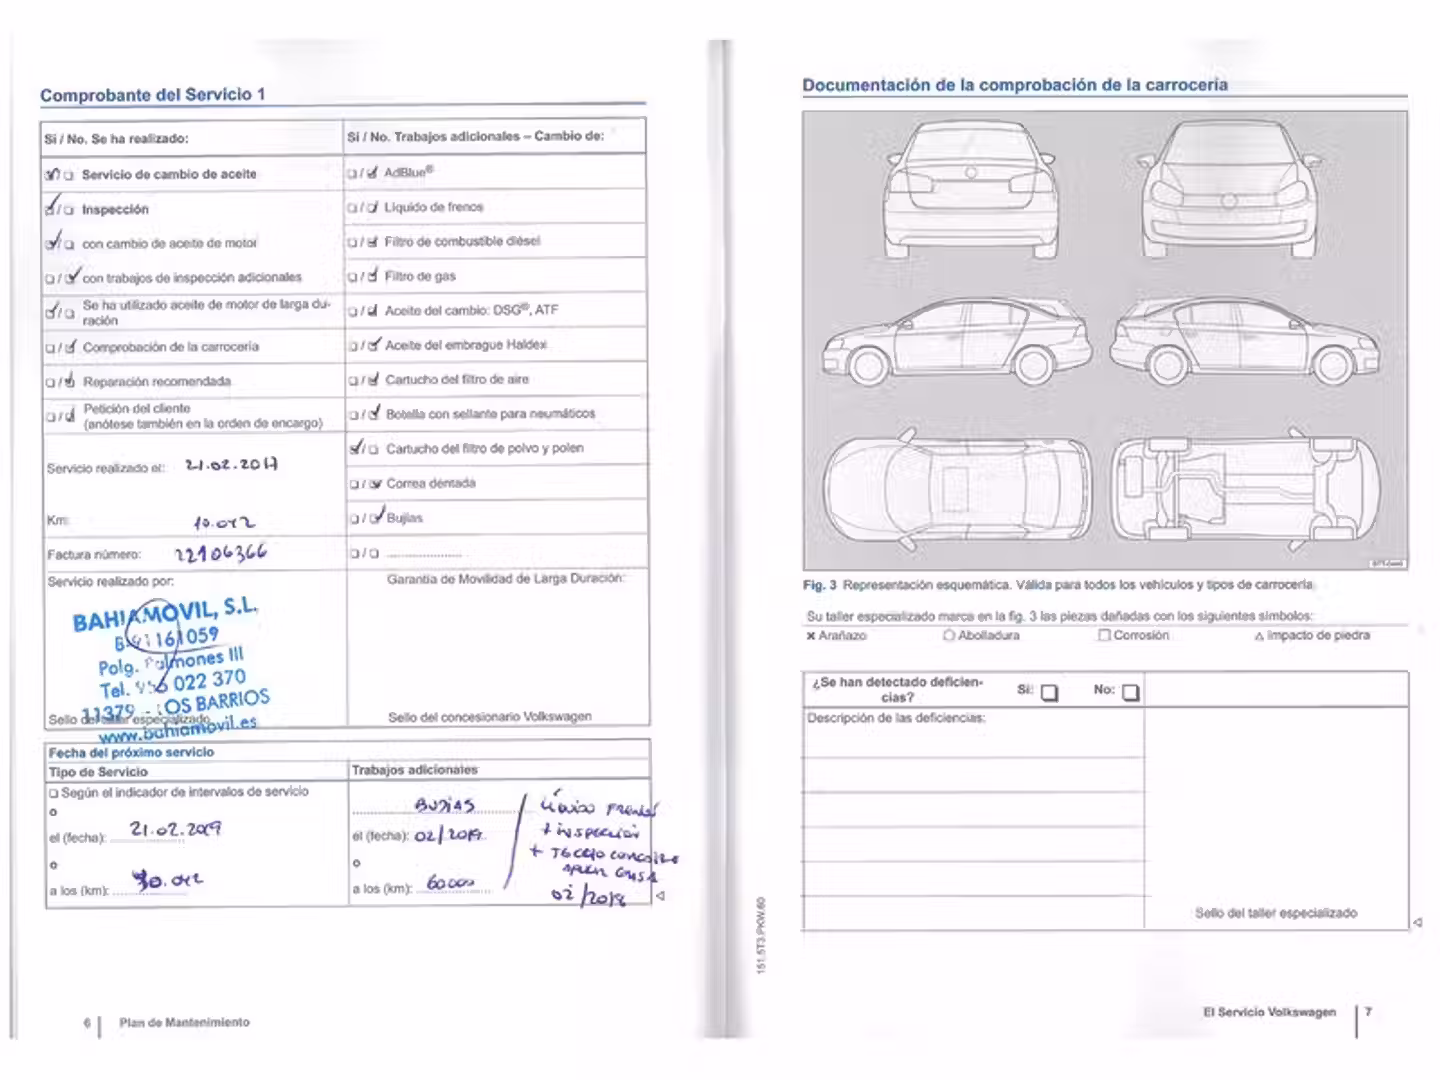 Comprobante del Servicio 1
Sí / No. Se ha realizado:
Servicio de cambio de aceite
Inspección
con cambio de aceite de motor
con trabajos de inspección adicionales
Se ha utilizado aceite de motor de larga du-
ración
Comprobación de la carrocería
Reparación recomendada
Petición del cliente
(anótese también en la orden de encargo)
Servicio realizado el: 21.02.2017
Km: 10.042
Factura número: 22106366
Servicio realizado por:
BAHIAMOVIL, S.L.
161059
Polg. Palmones III
Tel. 956 022 370
11379 - LOS BARRIOS
www.bahiamovil.es
Sello del taller especializado
Sí / No. Trabajos adicionales – Cambio de:
AdBlue®
Líquido de frenos
Filtro de combustible diésel
Filtro de gas
Aceite del cambio: DSG®, ATF
Aceite del embrague Haldex
Cartucho del filtro de aire
Botella con sellante para neumáticos
Cartucho del filtro de polvo y polen
Correa dentada
Bujías
Garantía de Movilidad de Larga Duración:
Sello del concesionario Volkswagen
Fecha del próximo servicio
Tipo de Servicio
Según el indicador de intervalos de servicio
o
el (fecha): 21.02.2019
o
a los (km): 30.042
Trabajos adicionales
BUJIAS
el (fecha): 02/2019
o
a los (km): 60000
LIQUIDO FRENOS
+ INSPECCION
+ TECHO
02/2018
6 | Plan de Mantenimiento
Documentación de la comprobación de la carrocería
Fig. 3 Representación esquemática. Válida para todos los vehículos y tipos de carrocería
Su taller especializado marca en la fig. 3 las piezas dañadas con los siguientes símbolos:
Arañazo Abolladura Corrosión Impacto de piedra
¿Se han detectado deficien-
cias?
Sí: No:
Descripción de las deficiencias:
Sello del taller especializado
151.5T3.PKW.60
El Servicio Volkswagen | 7